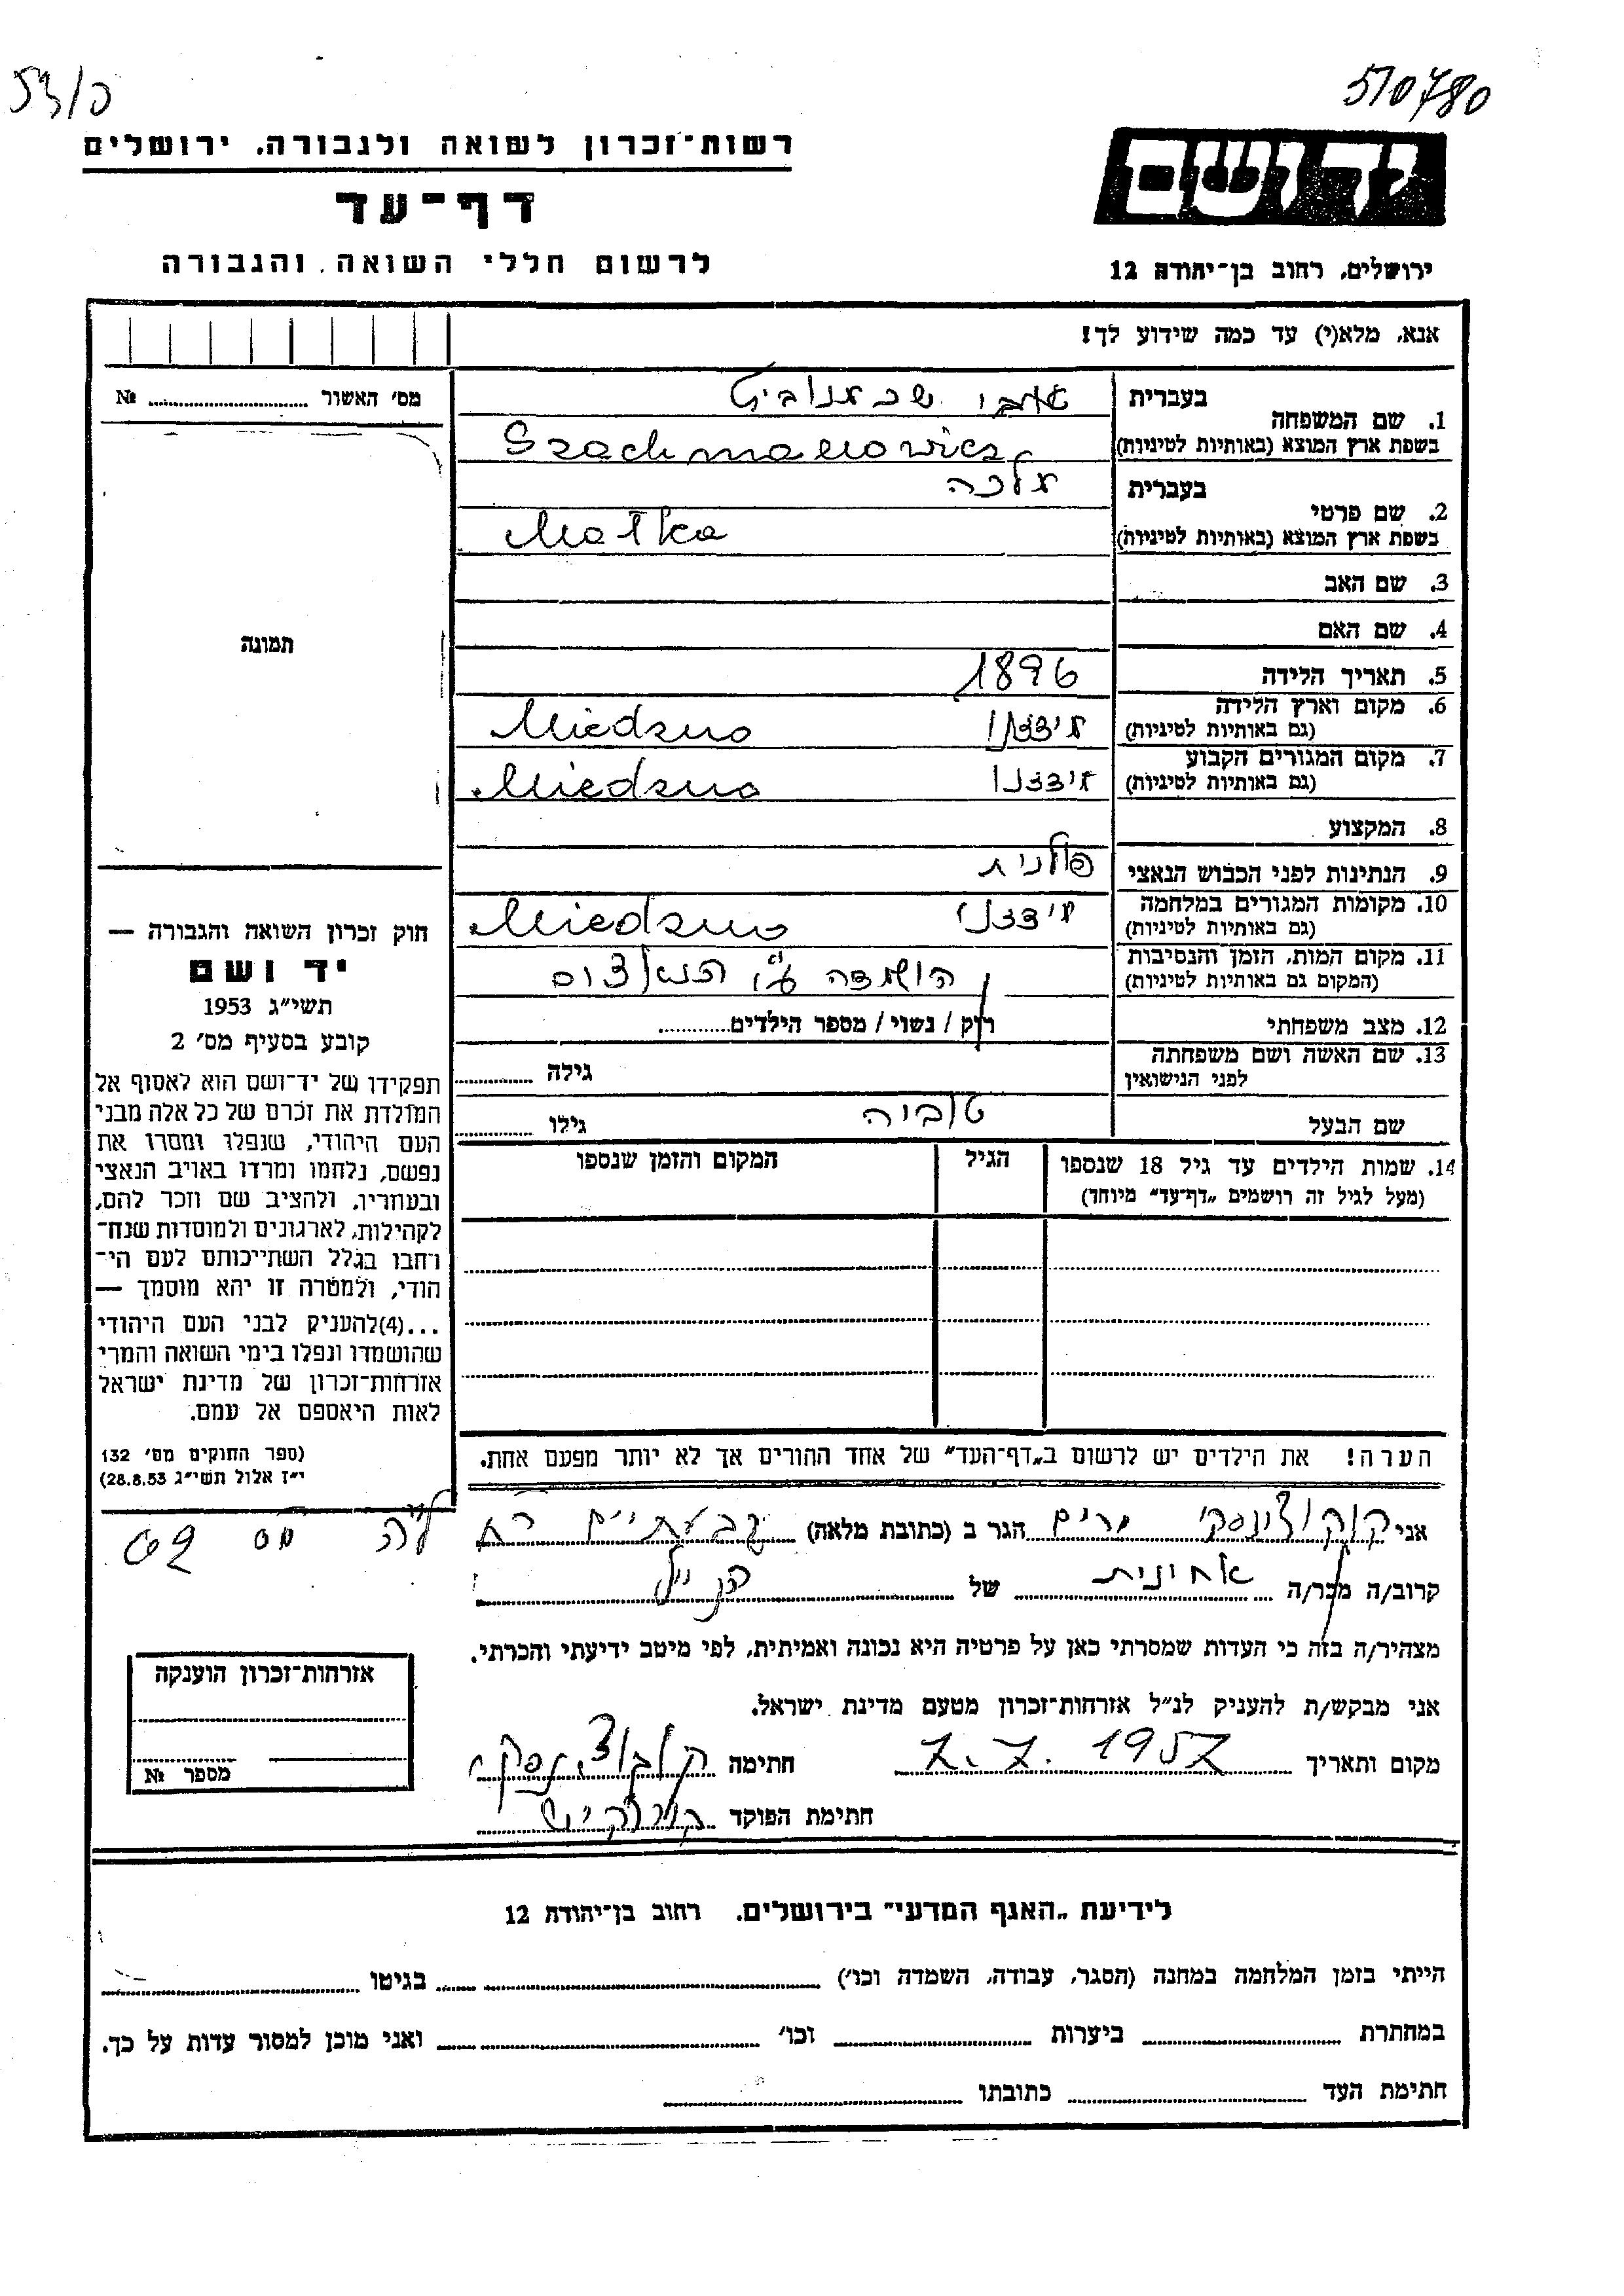 53/פ
510780
רשות־זכרון לשואה ולגבורה, ירושלים
דף־עד
לרשום חללי השואה והגבורה
יד ושם
ירושלים, רחוב בן־יהודה 12
אנא, מלא(י) עד כמה שידוע לך!
מס' האשור № ............
1. שם המשפחה
בעברית
שכמנוביץ
בשפת ארץ המוצא (באותיות לטיניות)
Szachmanowicz
2. שם פרטי
בעברית
מלכה
בשפת ארץ המוצא (באותיות לטיניות)
Małka
3. שם האב
4. שם האם
5. תאריך הלידה 1896
6. מקום וארץ הלידה
(גם באותיות לטיניות)
מידזנו Miedzno
7. מקום המגורים הקבוע
(גם באותיות לטיניות)
מידזנו Miedzno
8. המקצוע
9. הנתינות לפני הכבוש הנאצי פולנית
10. מקומות המגורים במלחמה
(גם באותיות לטיניות)
Miedzno
11. מקום המות, הזמן והנסיבות
(המקום גם באותיות לטיניות)
הושמדה ע"י הנאצים
12. מצב משפחתי רוק / נשוי / מספר הילדים............
13. שם האשה ושם משפחתה
לפני הנישואין
גילה ............
שם הבעל טוביה גילו ............
14. שמות הילדים עד גיל 18 שנספו
(מעל לגיל זה רושמים „דף־עד" מיוחד)
הגיל
המקום והזמן שנספו
הערה! את הילדים יש לרשום ב„דף־העד" של אחד ההורים אך לא יותר מפעם אחת.
תמונה
חוק זכרון השואה והגבורה —
יד ושם
תשי"ג 1953
קובע בסעיף מס' 2
תפקידו של יד־ושם הוא לאסוף אל
המולדת את זכרם של כל אלה מבני
העם היהודי, שנפלו ומסרו את
נפשם, נלחמו ומרדו באויב הנאצי
ובעוזריו, ולהציב שם וזכר להם,
לקהילות, לארגונים ולמוסדות שנח־
רחבו בגלל השתייכותם לעם הי־
הודי, ולמטרה זו יהא מוסמך —
...(4)להעניק לבני העם היהודי
שהושמדו ונפלו בימי השואה והמרי
אזרחות־זכרון של מדינת ישראל
לאות היאספם אל עמם.
(ספר החוקים מס' 132
י"ז אלול תשי"ג 28.8.53)
אני מרים הגר ב (כתובת מלאה) גבעתיים רח
קרוב/ה מכר/ה של
מצהיר/ה בזה כי העדות שמסרתי כאן על פרטיה היא נכונה ואמיתית, לפי מיטב ידיעתי והכרתי.
אני מבקש/ת להעניק לנ"ל אזרחות־זכרון מטעם מדינת ישראל.
מקום ותאריך 7.7.1957 חתימה
חתימת הפוקד
אזרחות־זכרון הוענקה
מספר №
לידיעת „האגף המדעי" בירושלים, רחוב בן־יהודה 12
הייתי בזמן המלחמה במחנה (הסגר, עבודה, השמדה וכו') בגיטו
במחתרת ביערות וכו' ואני מוכן למסור עדות על כך.
חתימת העד כתובתו